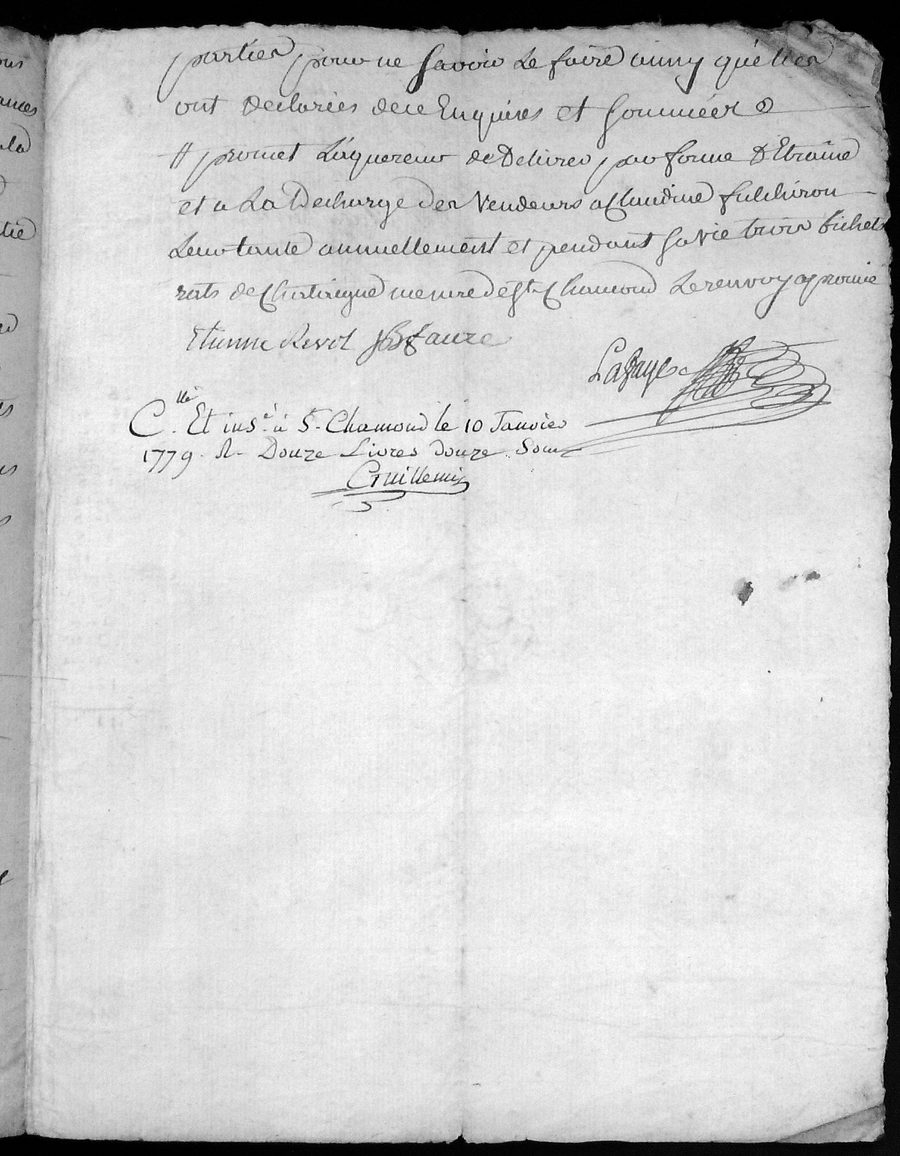 parties pour ne savoir le faire ainsy quélles
ont declarées de ce Enquises et sommées
# promet L'aquereur de Delivrer par forme D'Etraine
et a La Decharge des Vendeurs a Claudine fulchiron
Leur tante annuellement et pendant sa vie trois bichets
mesure de St Chamond Le renvoy aprouvé
Etienne Revol JB faure
Lafaye
C.llé Et ins.é à St Chamond le 10 Janvier
1779. R. Douze Livres douze Sous
Guillemin